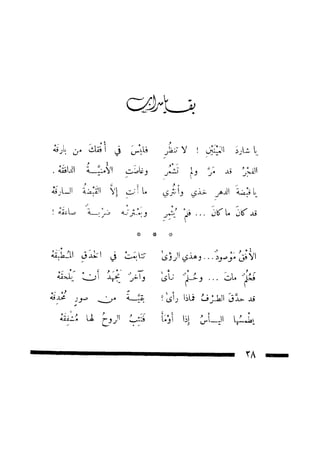 بقايا مدامي
يا شارِدَ العينَيْنِ ! لا تنظُرِ فليْسَ في أُفْقِكَ من بارِقَهْ
الفجْرُ قد مَرَّ ولم تَشْعُرِ وغابَتِ الأُمنيَّةُ الدافقَهْ .
يا قَبْضَةَ الدهرِ خذي وأنثُري ما أنتِ إلاّ القَبْضةُ السارقَهْ
قد كانَ ما كانَ ... فلم يُثْمِرِ صاعقَهْ !
* * *
الأُفْقُ مَوْصودٌ ... وهذي الرؤى تتابعَتْ في الخندقِ المُطبقَهْ
فحُلُمٌ ماتَ ... وحُلْمٌ نأى وآخرٌ يَجْهَدُ أنْ يَلْحقَهْ
قد حدَّقَ الطرْفُ فماذا رأى ؟ بقيَّةً من صورٍ مُحْدِقَهْ
يطمسُها اليأسُ إذا أوْمأَ الروحُ لها مُشْفِقَهْ
٣٨